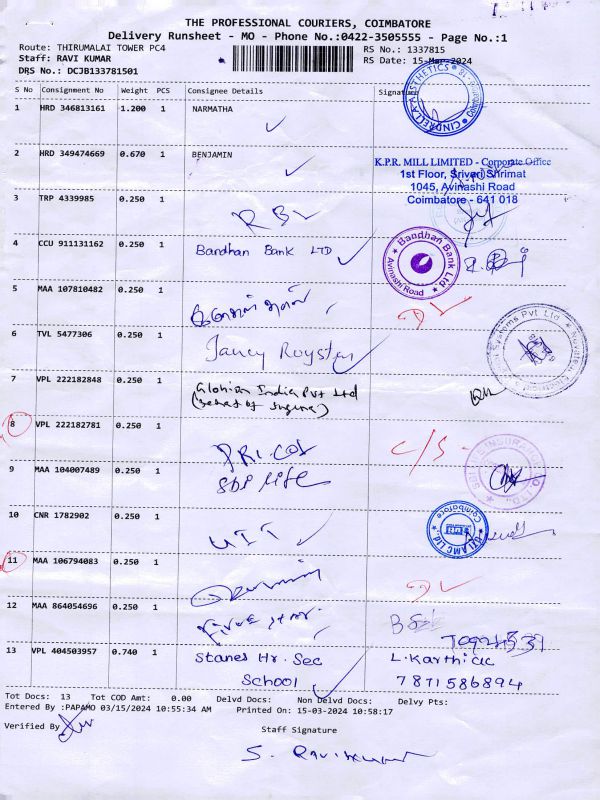 THE PROFESSIONAL COURIERS, COIMBATORE
Delivery Runsheet - MO - Phone No.:0422-3505555 - Page No.:1
Route: THIRUMALAI TOWER PC4 RS No.: 1337815
Staff: RAVI KUMAR RS Date: 15-Mar-2024
DRS No.: DCJB133781501
S No Consignment No Weight PCS Consignee Details Signature
1 HRD 346813161 1.200 1 NARMATHA
CINDRELLA AESTHETICS Coimbatore
2 HRD 349474669 0.670 1 BENJAMIN
K.P.R. MILL LIMITED - Corporate Office
1st Floor, Srivari Shrimat
1045, Avinashi Road
Coimbatore - 641 018
3 TRP 4339985 0.250 1 RBL
4 CCU 911131162 0.250 1 Bandhan Bank LTD
Bandhan Bank Ltd. Avinashi Road
5 MAA 107810482 0.250 1
6 TVL 5477306 0.250 1 Jancy Royston
Systems Pvt. Ltd
7 VPL 222182848 0.250 1 Globion India Pvt Ltd
8 VPL 222182781 0.250 1 PRICOL C/S
9 MAA 104007489 0.250 1 SBI Life
10 CNR 1782902 0.250 1 UTI
UTI AMC Ltd. Coimbatore
11 MAA 106794083 0.250 1
12 MAA 864054696 0.250 1
13 VPL 404503957 0.740 1 Stanes Hr. Sec School L. Karthic 7871586894
Tot Docs: 13 Tot COD Amt: 0.00 Delvd Docs: Non Delvd Docs: Delvy Pts:
Entered By :PAPAMO 03/15/2024 10:55:34 AM Printed On: 15-03-2024 10:58:17
Verified By
Staff Signature
S. Ravikumar